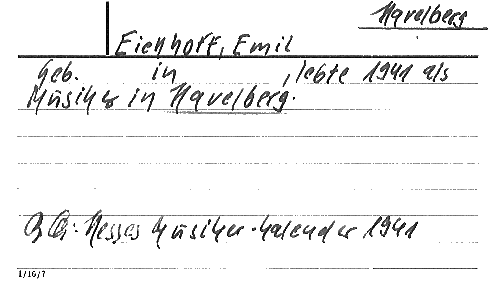 Havelberg
Eichhoff, Emil
Geb. in , lebte 1941 als
Musiker in Havelberg.
Hesses Musiker-Kalender 1941
1/16/7